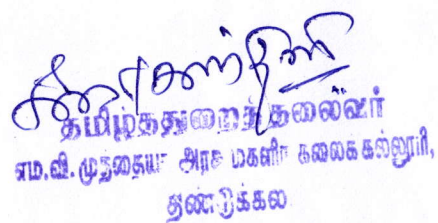 தமிழ்த்துறைத்தலைவர்
எம.வி.முத்தையா அரசு மகளிர் கலைக்கல்லூரி,
திண்டுக்கல